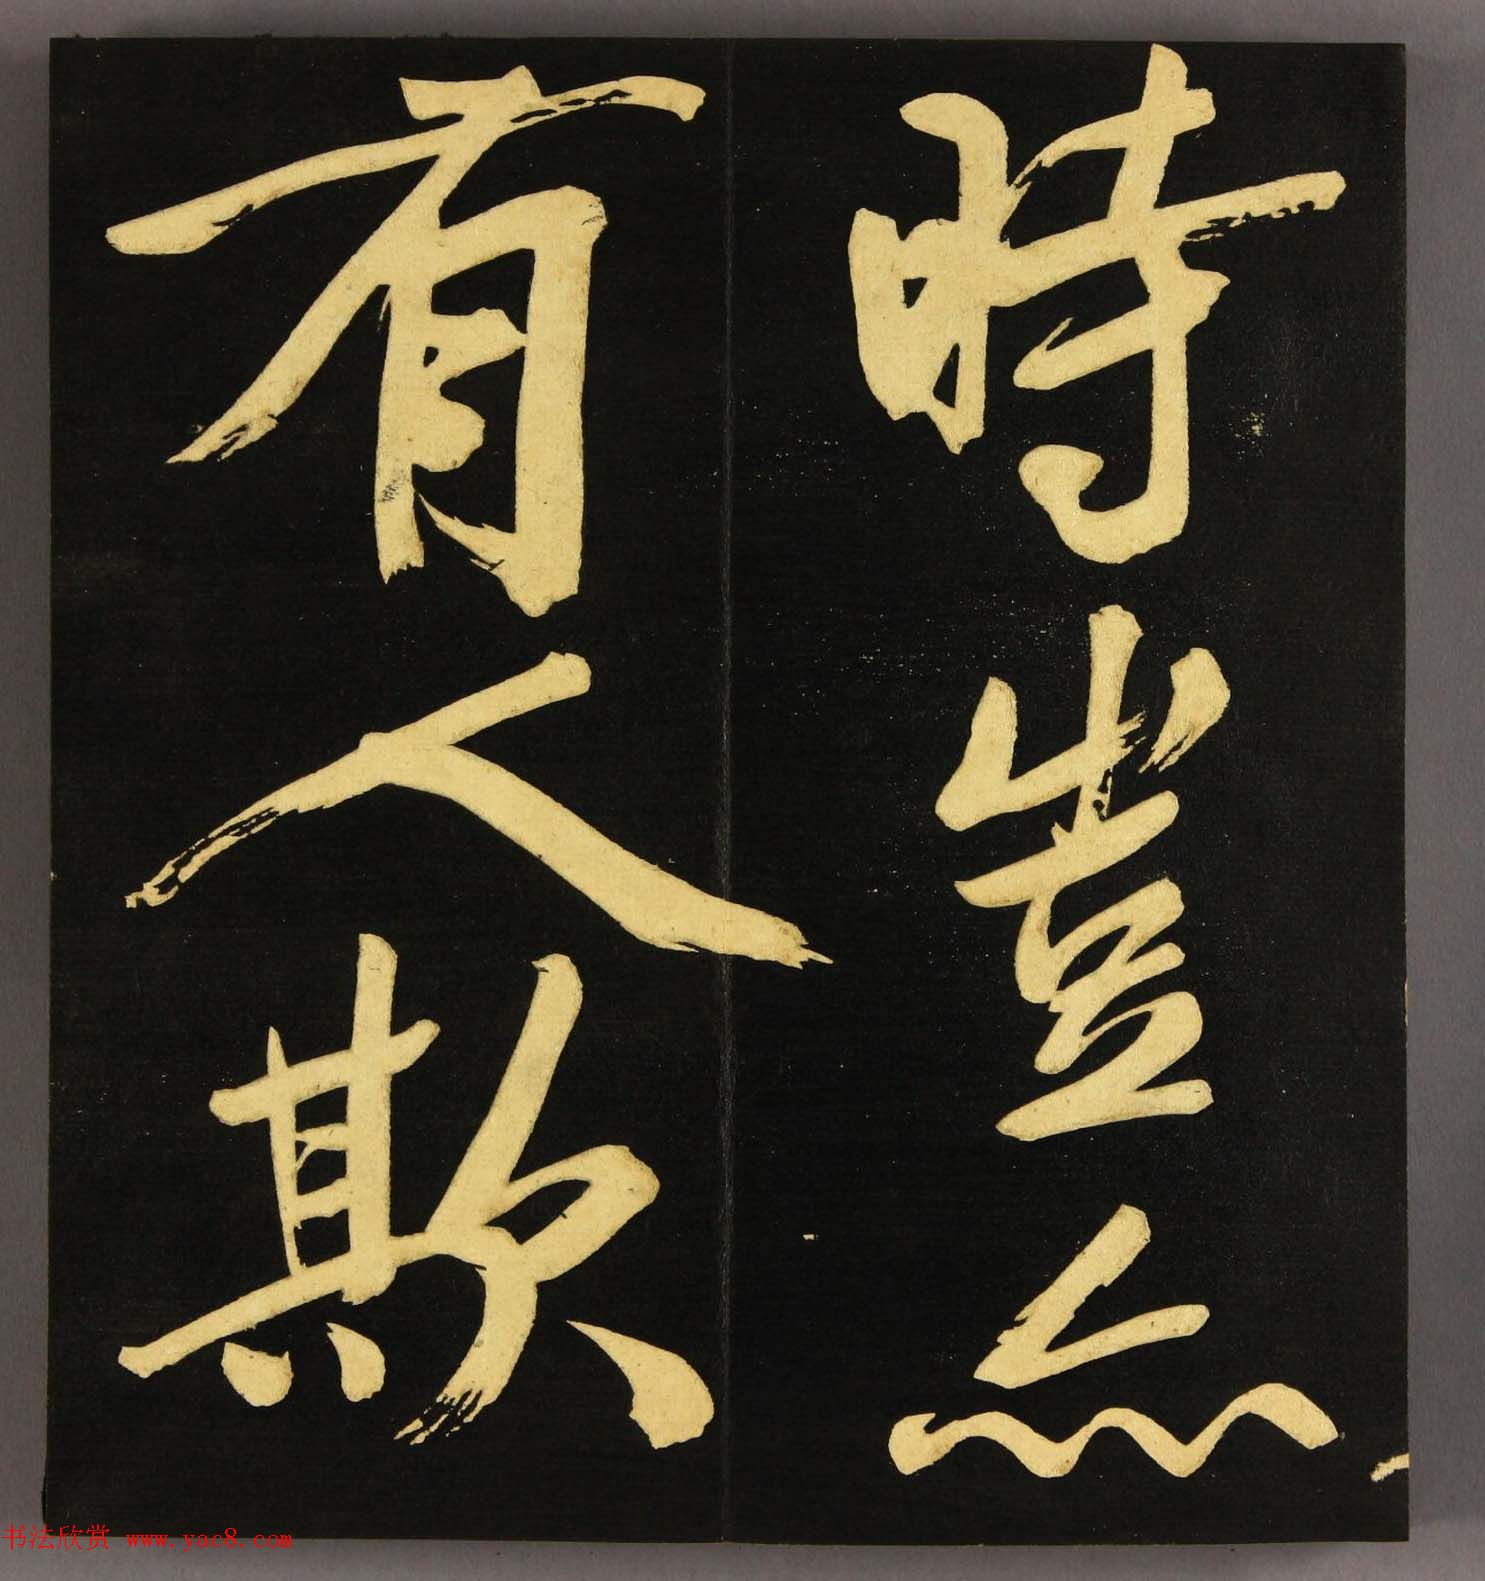 時豈亦
有人欺
书法欣赏 www.yac8.com